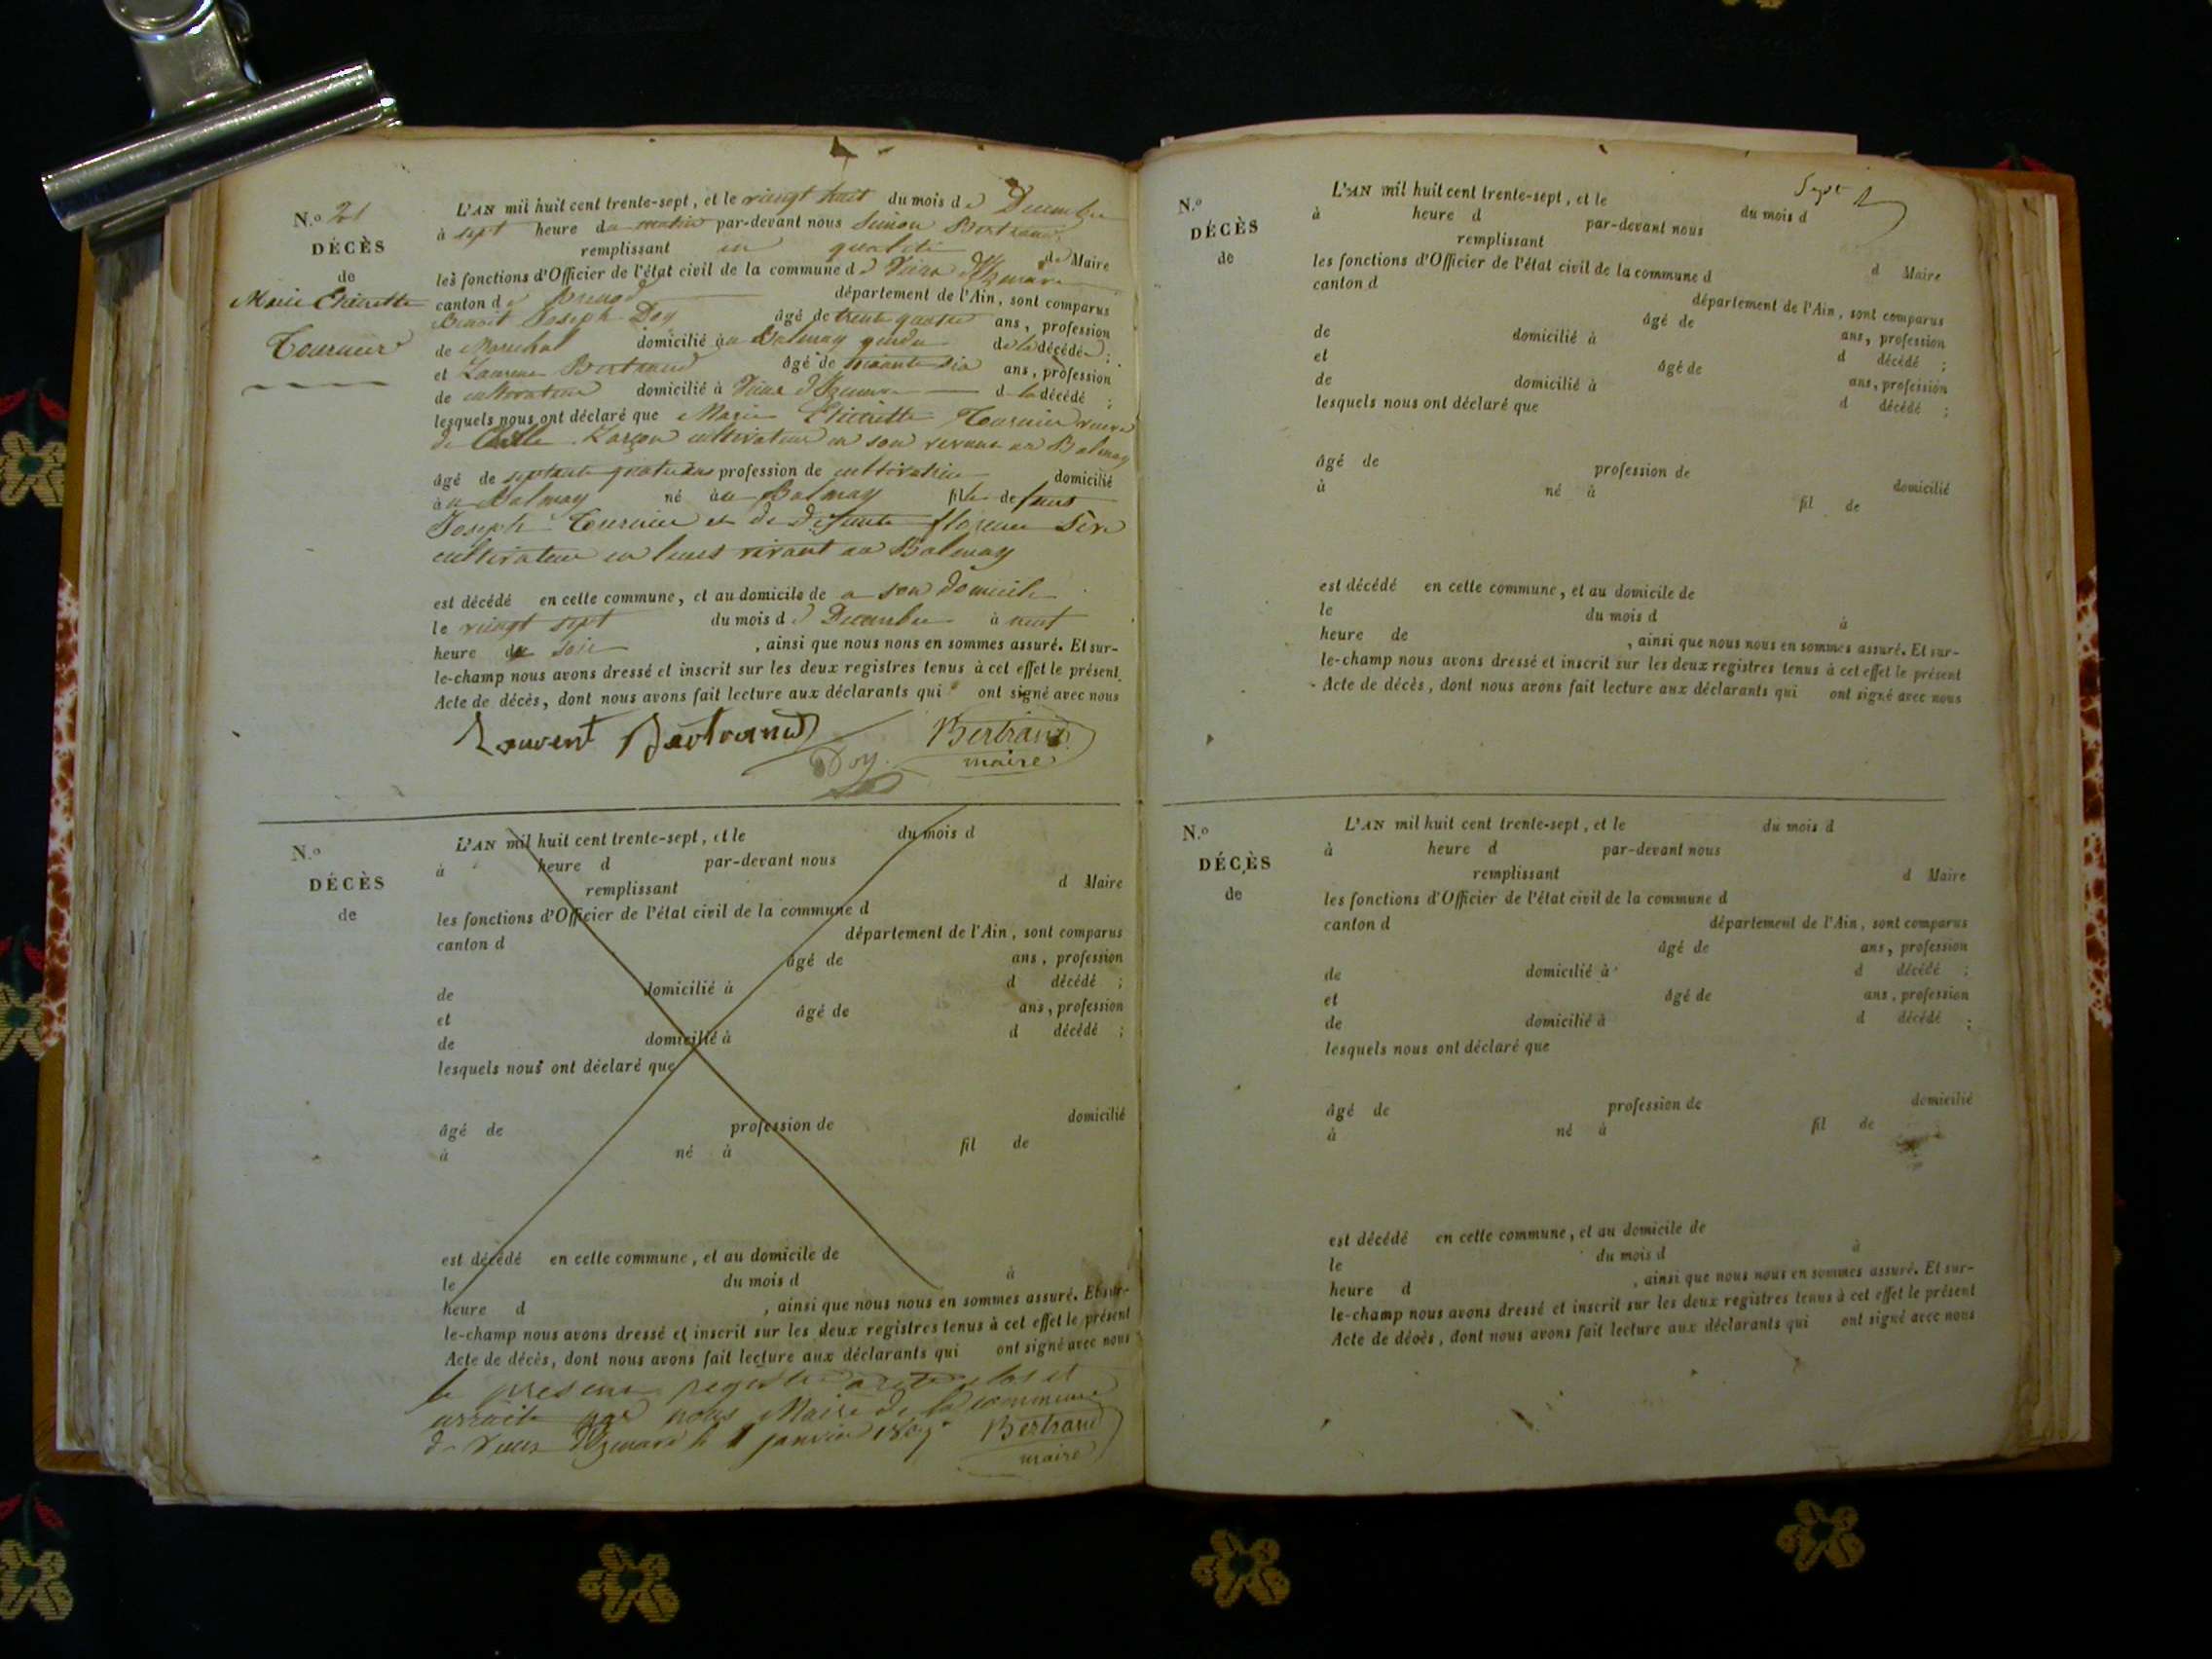 N.o 21
DÉCÈS
de
Marie Etiennette
Tournier
L'AN mil huit cent trente-sept, et le vingt huit du mois de Decembre
à sept heure du matin par-devant nous Simon Bertrand
remplissant en qualité de Maire
les fonctions d'Officier de l'état civil de la commune de Vieux d'Izenave
canton de Brenod département de l'Ain, sont comparus
Benoit Joseph Doy âgé de trente quatre ans, profession
de Marechal domicilié au Balmay gendre de la décédée;
et Laurent Bertrand âgé de soixante dix ans, profession
de cultivateur domicilié à Vieux d'Izenave d la décédé ;
lesquels nous ont déclaré que Marie Etiennette Tournier veuve
de Lançon cultivateur en son vivant au Balmay
âgé de septante quatre ans profession de cultivatrice domicilié
à au Balmay né à au Balmay fille de feus
Joseph Tournier et de defunte florence
cultivateur en leurs vivant au Balmay
est décédé en cette commune, et au domicile de a son domicile
le vingt sept du mois de Decembre à neuf
heure du soir , ainsi que nous nous en sommes assuré. Et sur-
le-champ nous avons dressé et inscrit sur les deux registres tenus à cet effet le présent
Acte de décès, dont nous avons fait lecture aux déclarants qui ont signé avec nous
Laurent Bertrand Doy Bertrand
maire
N.o
DÉCÈS
de
L'AN mil huit cent trente-sept, et le du mois d
à heure d par-devant nous
remplissant d Maire
les fonctions d'Officier de l'état civil de la commune d
canton d département de l'Ain, sont comparus
âgé de ans, profession
de domicilié à d décédé ;
et âgé de ans, profession
de domicilié à d décédé ;
lesquels nous ont déclaré que
âgé de profession de domicilié
à né à fil de
est décédé en cette commune, et au domicile de
le du mois d à
heure d , ainsi que nous nous en sommes assuré. Et sur-
le-champ nous avons dressé et inscrit sur les deux registres tenus à cet effet le présent
Acte de décès, dont nous avons fait lecture aux déclarants qui ont signé avec nous
le present registre a été clos et
arreté par nous Maire de la commune
de vieux d'Izenave le 1 janvier Bertrand
maire
Sept
N.o
DÉCÈS
de
L'AN mil huit cent trente-sept, et le du mois d
à heure d par-devant nous
remplissant d Maire
les fonctions d'Officier de l'état civil de la commune d
canton d département de l'Ain, sont comparus
âgé de ans, profession
de domicilié à d décédé ;
et âgé de ans, profession
de domicilié à d décédé ;
lesquels nous ont déclaré que
âgé de profession de domicilié
à né à fil de
est décédé en cette commune, et au domicile de
le du mois d à
heure de , ainsi que nous nous en sommes assuré. Et sur-
le-champ nous avons dressé et inscrit sur les deux registres tenus à cet effet le présent
Acte de décès, dont nous avons fait lecture aux déclarants qui ont signé avec nous
N.o
DÉCÈS
de
L'AN mil huit cent trente-sept, et le du mois d
à heure d par-devant nous
remplissant d Maire
les fonctions d'Officier de l'état civil de la commune d
canton d département de l'Ain, sont comparus
âgé de ans, profession
de domicilié à d décédé ;
et âgé de ans, profession
de domicilié à d décédé ;
lesquels nous ont déclaré que
âgé de profession de domicilié
à né à fil de
est décédé en cette commune, et au domicile de
le du mois d à
heure d , ainsi que nous nous en sommes assuré. Et sur-
le-champ nous avons dressé et inscrit sur les deux registres tenus à cet effet le présent
Acte de décès, dont nous avons fait lecture aux déclarants qui ont signé avec nous